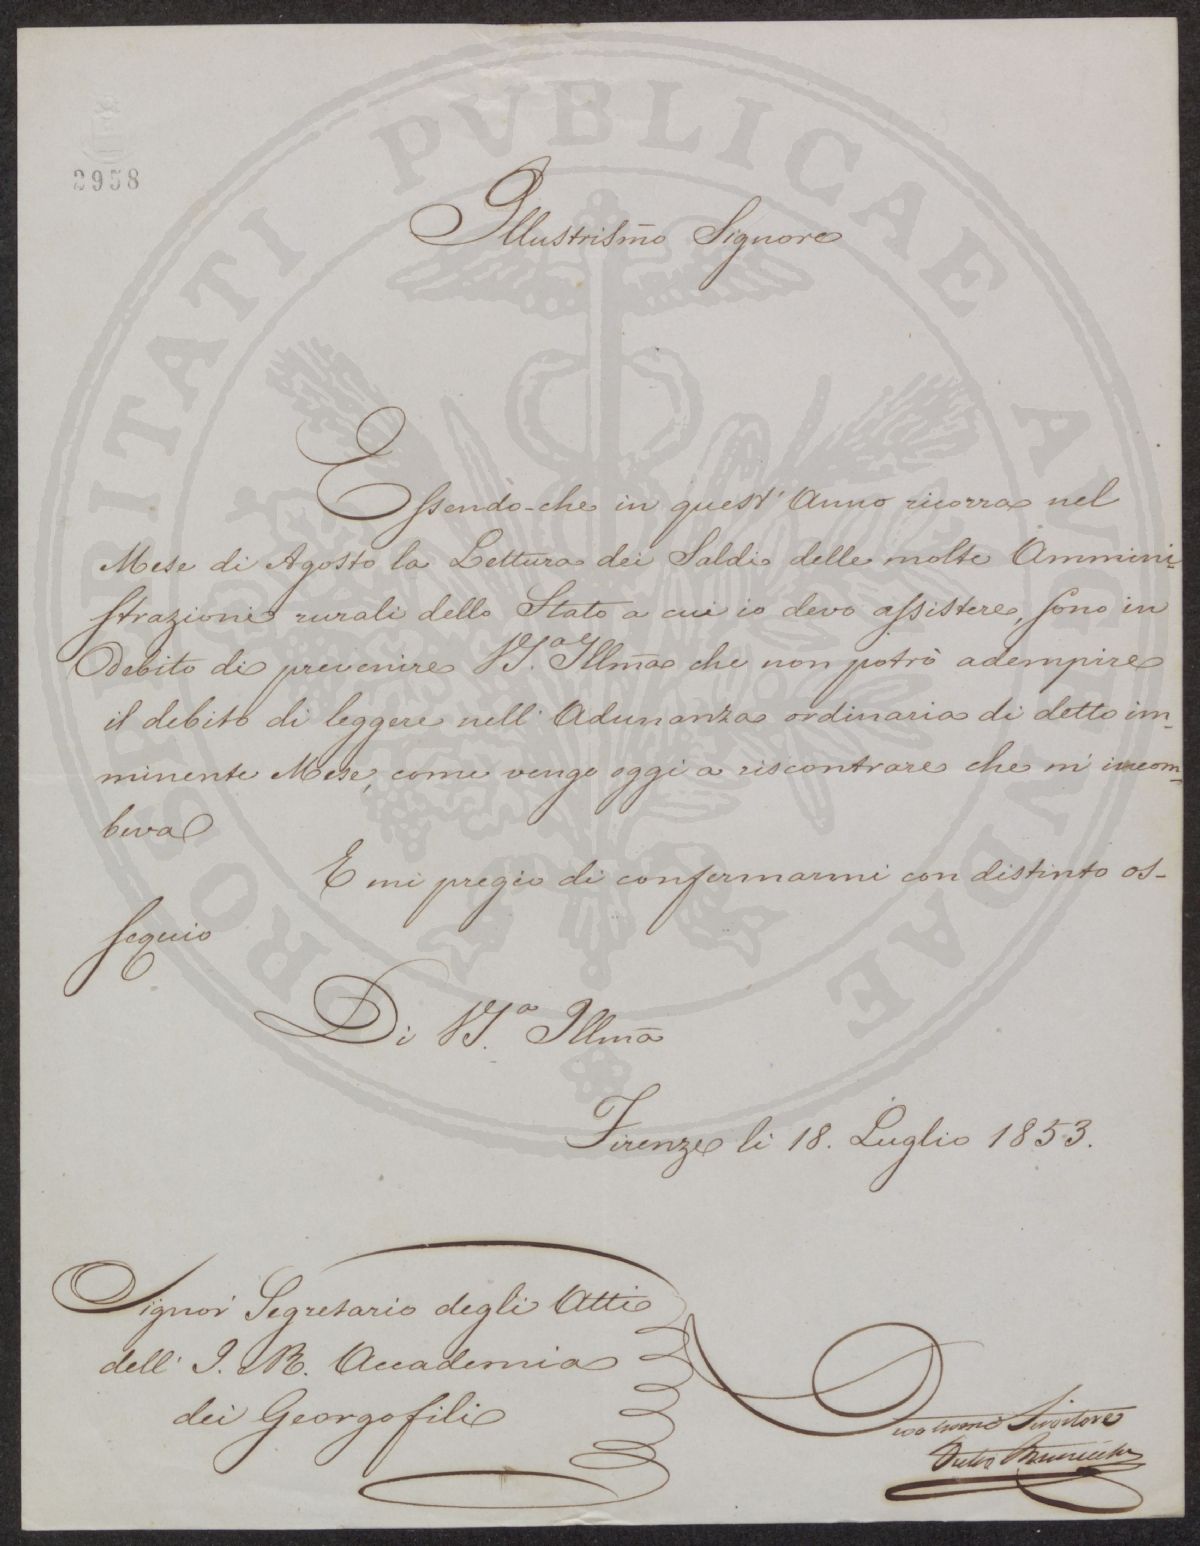 PROSPERITATI PVBLICAE AVGENDAE
2958
Illustrism̃o Signore
Essendo-che in quest' Anno ricorra nel
Mese di Agosto la Lettura dei Saldi delle molte Ammini-
strazioni rurali dello Stato a cui io devo assistere, sono in
Debito di prevenire V.S.ª Illm̃a che non potrò adempire
il debito di leggere nell' Adunanza ordinaria di detto im-
minente Mese, come vengo oggi a riscontrare che m' incom-
beva
E mi pregio di confermarmi con distinto os-
sequio
Di V.S.ª Illm̃a
Firenze li 18. Luglio 1853.
Signor Segretario degli Atti
dell' I. R. Accademia
dei Georgofili
Servitore